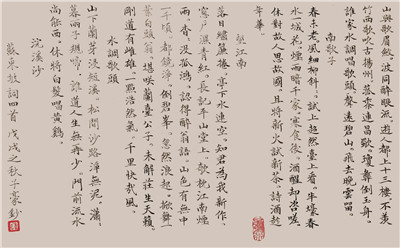 山與歌眉斂。波同醉眼流。遊人都上十三樓。不羨
竹西歌吹古揚州。菰黍連昌歜。瓊彝倒玉舟。
誰家水調唱歌頭。聲繞碧山。飛去晚雲留。
南歌子
春未老。風細柳斜斜。試上超然臺上看。半壕春
水一城花。煙雨暗千家。寒食後。酒醒却咨嗟。
休對故人思故國。且將新火試新茶。詩酒趁
年華。
望江南
落日繡簾捲。亭下水連空。知君為我新作。
窗戶濕青紅。長記平山堂上。欹枕江南煙
雨。杳杳沒孤鴻。認得醉翁語。山色有無中
一千頃。都鏡淨。倒碧峯。忽然浪起。掀舞一
葉白頭翁。堪咲蘭臺公子。未解莊生天籟。
剛道有雌雄。一點浩然氣。千里快哉風。
水調歌頭
山下蘭芽短浸溪。松間沙路淨無泥。瀟瀟
暮雨子規啼。誰道人生無再少。門前流水
尚能西。休將白髮唱黃鷄。
浣溪沙
蘇東坡詞四首 戊戌之秋子豪鈔